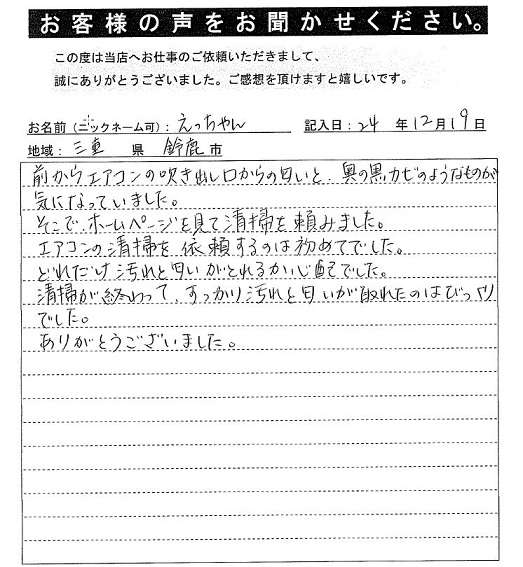 お客様の声をお聞かせください。
この度は当店へお仕事のご依頼いただきまして、
誠にありがとうございました。ご感想を頂けますと嬉しいです。
お名前（ニックネーム可）：えっちゃん 記入日：24 年 12 月 19 日
地域：三重 県 鈴鹿 市
前からエアコンの吹き出し口からの匂いと、奥の黒カビのようなものが
気になっていました。
そこで、ホームページを見て清掃を頼みました。
エアコンの清掃を依頼するのは初めてでした。
どれだけ汚れと匂いがとれるか心配でした。
清掃が終わって、すっかり汚れと匂いが取れたのはびっくり
でした。
ありがとうございました。